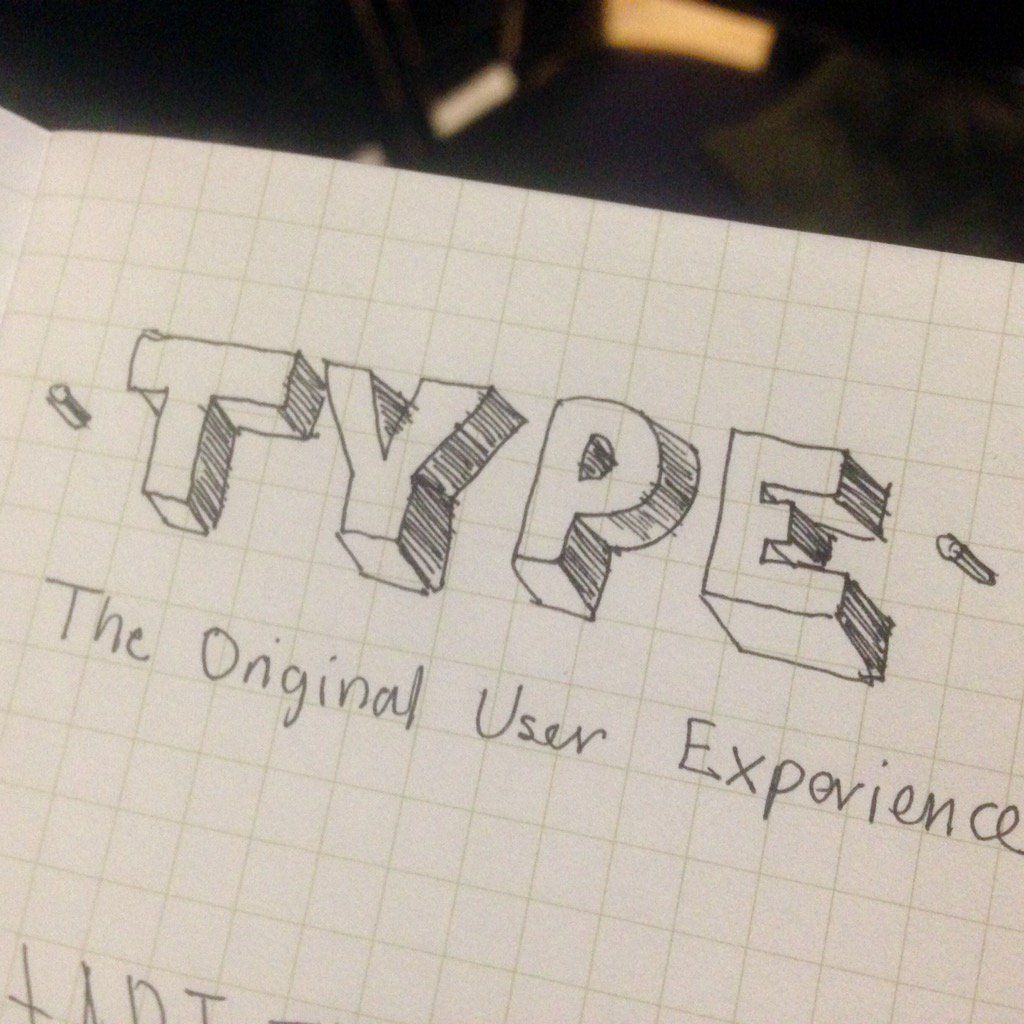 · TYPE ·
The Original User Experience